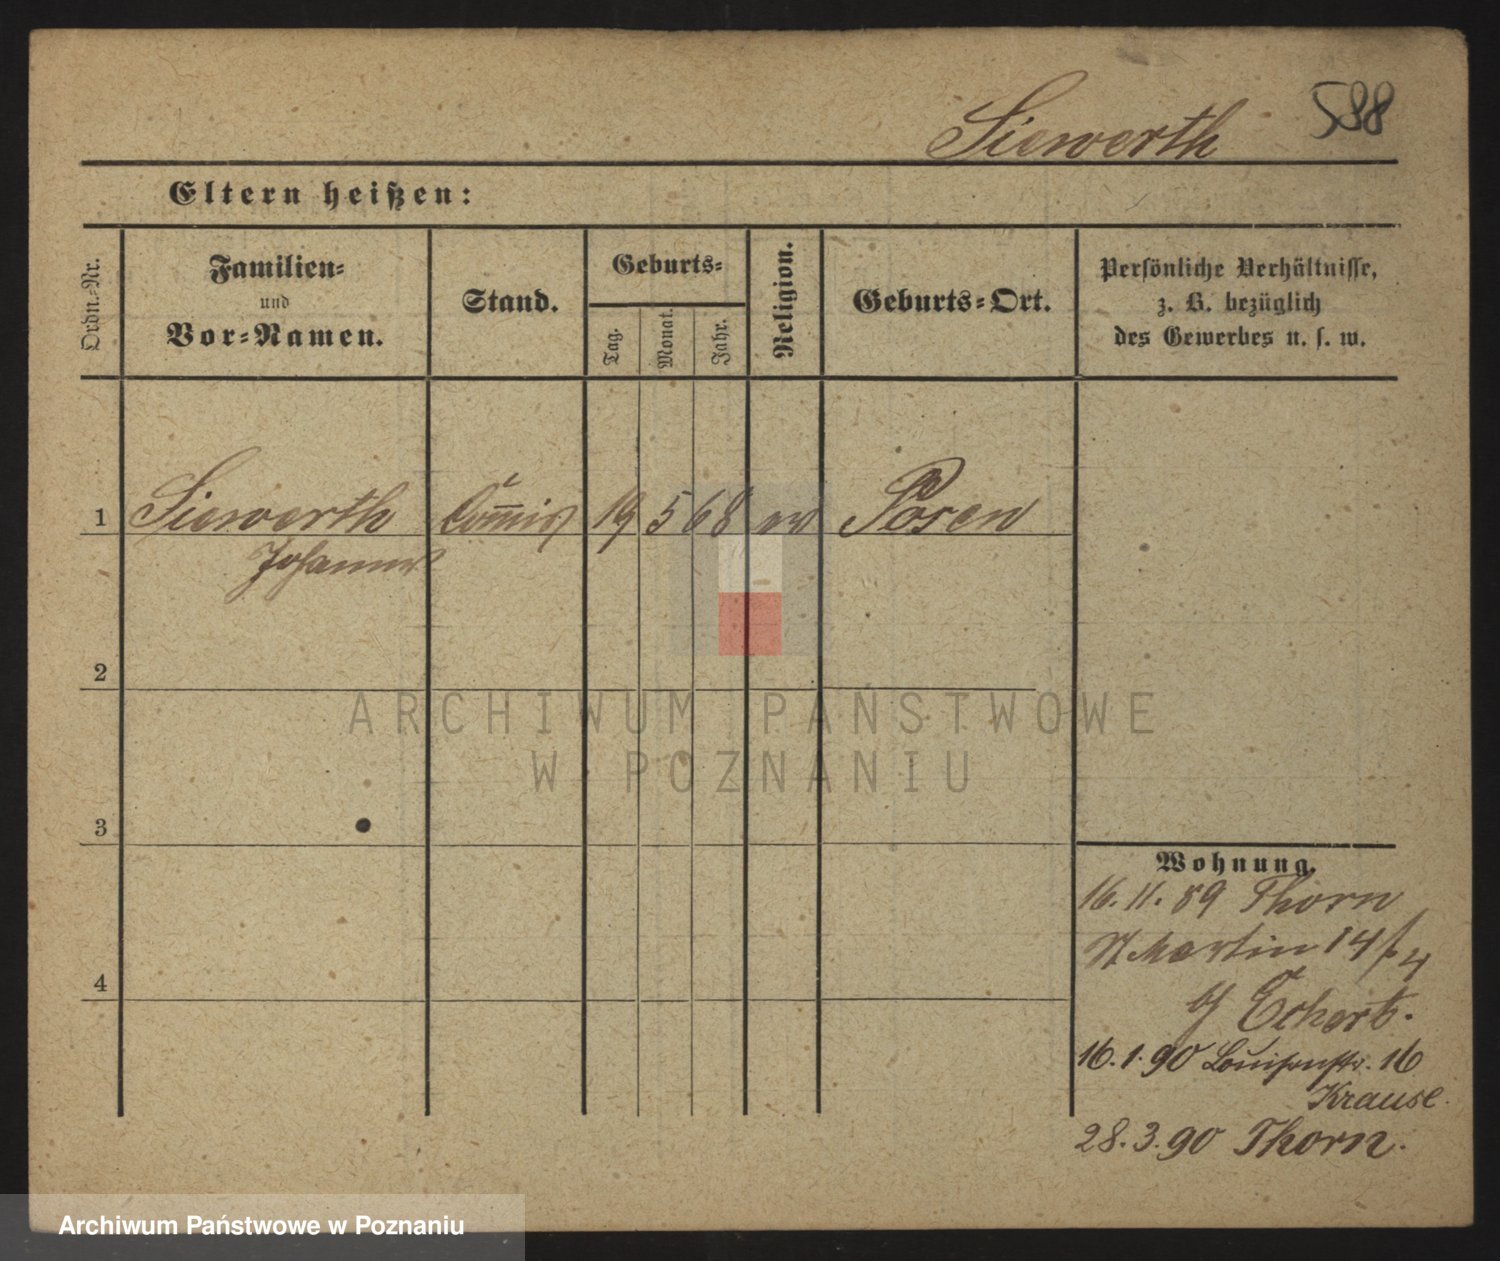 Siewerth 588
Eltern heißen:
Ordn.-Nr.
Familien-
und
Vor-Namen.
Stand.
Geburts-
Tag.
Monat.
Jahr.
Religion.
Geburts-Ort.
Persönliche Verhältnisse,
z. B. bezüglich
des Gewerbes u. s. w.
1 Siewerth Com̅is 19 5 68 ev Posen
Johannes
2
3
4
Wohnung.
16. 11. 89 Thorn
St Martin 14
b/ Eckert.
16. 1. 90 Louisenstr. 16
Krause.
28. 3. 90 Thorn.
ARCHIWUM PAŃSTWOWE
W POZNANIU
Archiwum Państwowe w Poznaniu